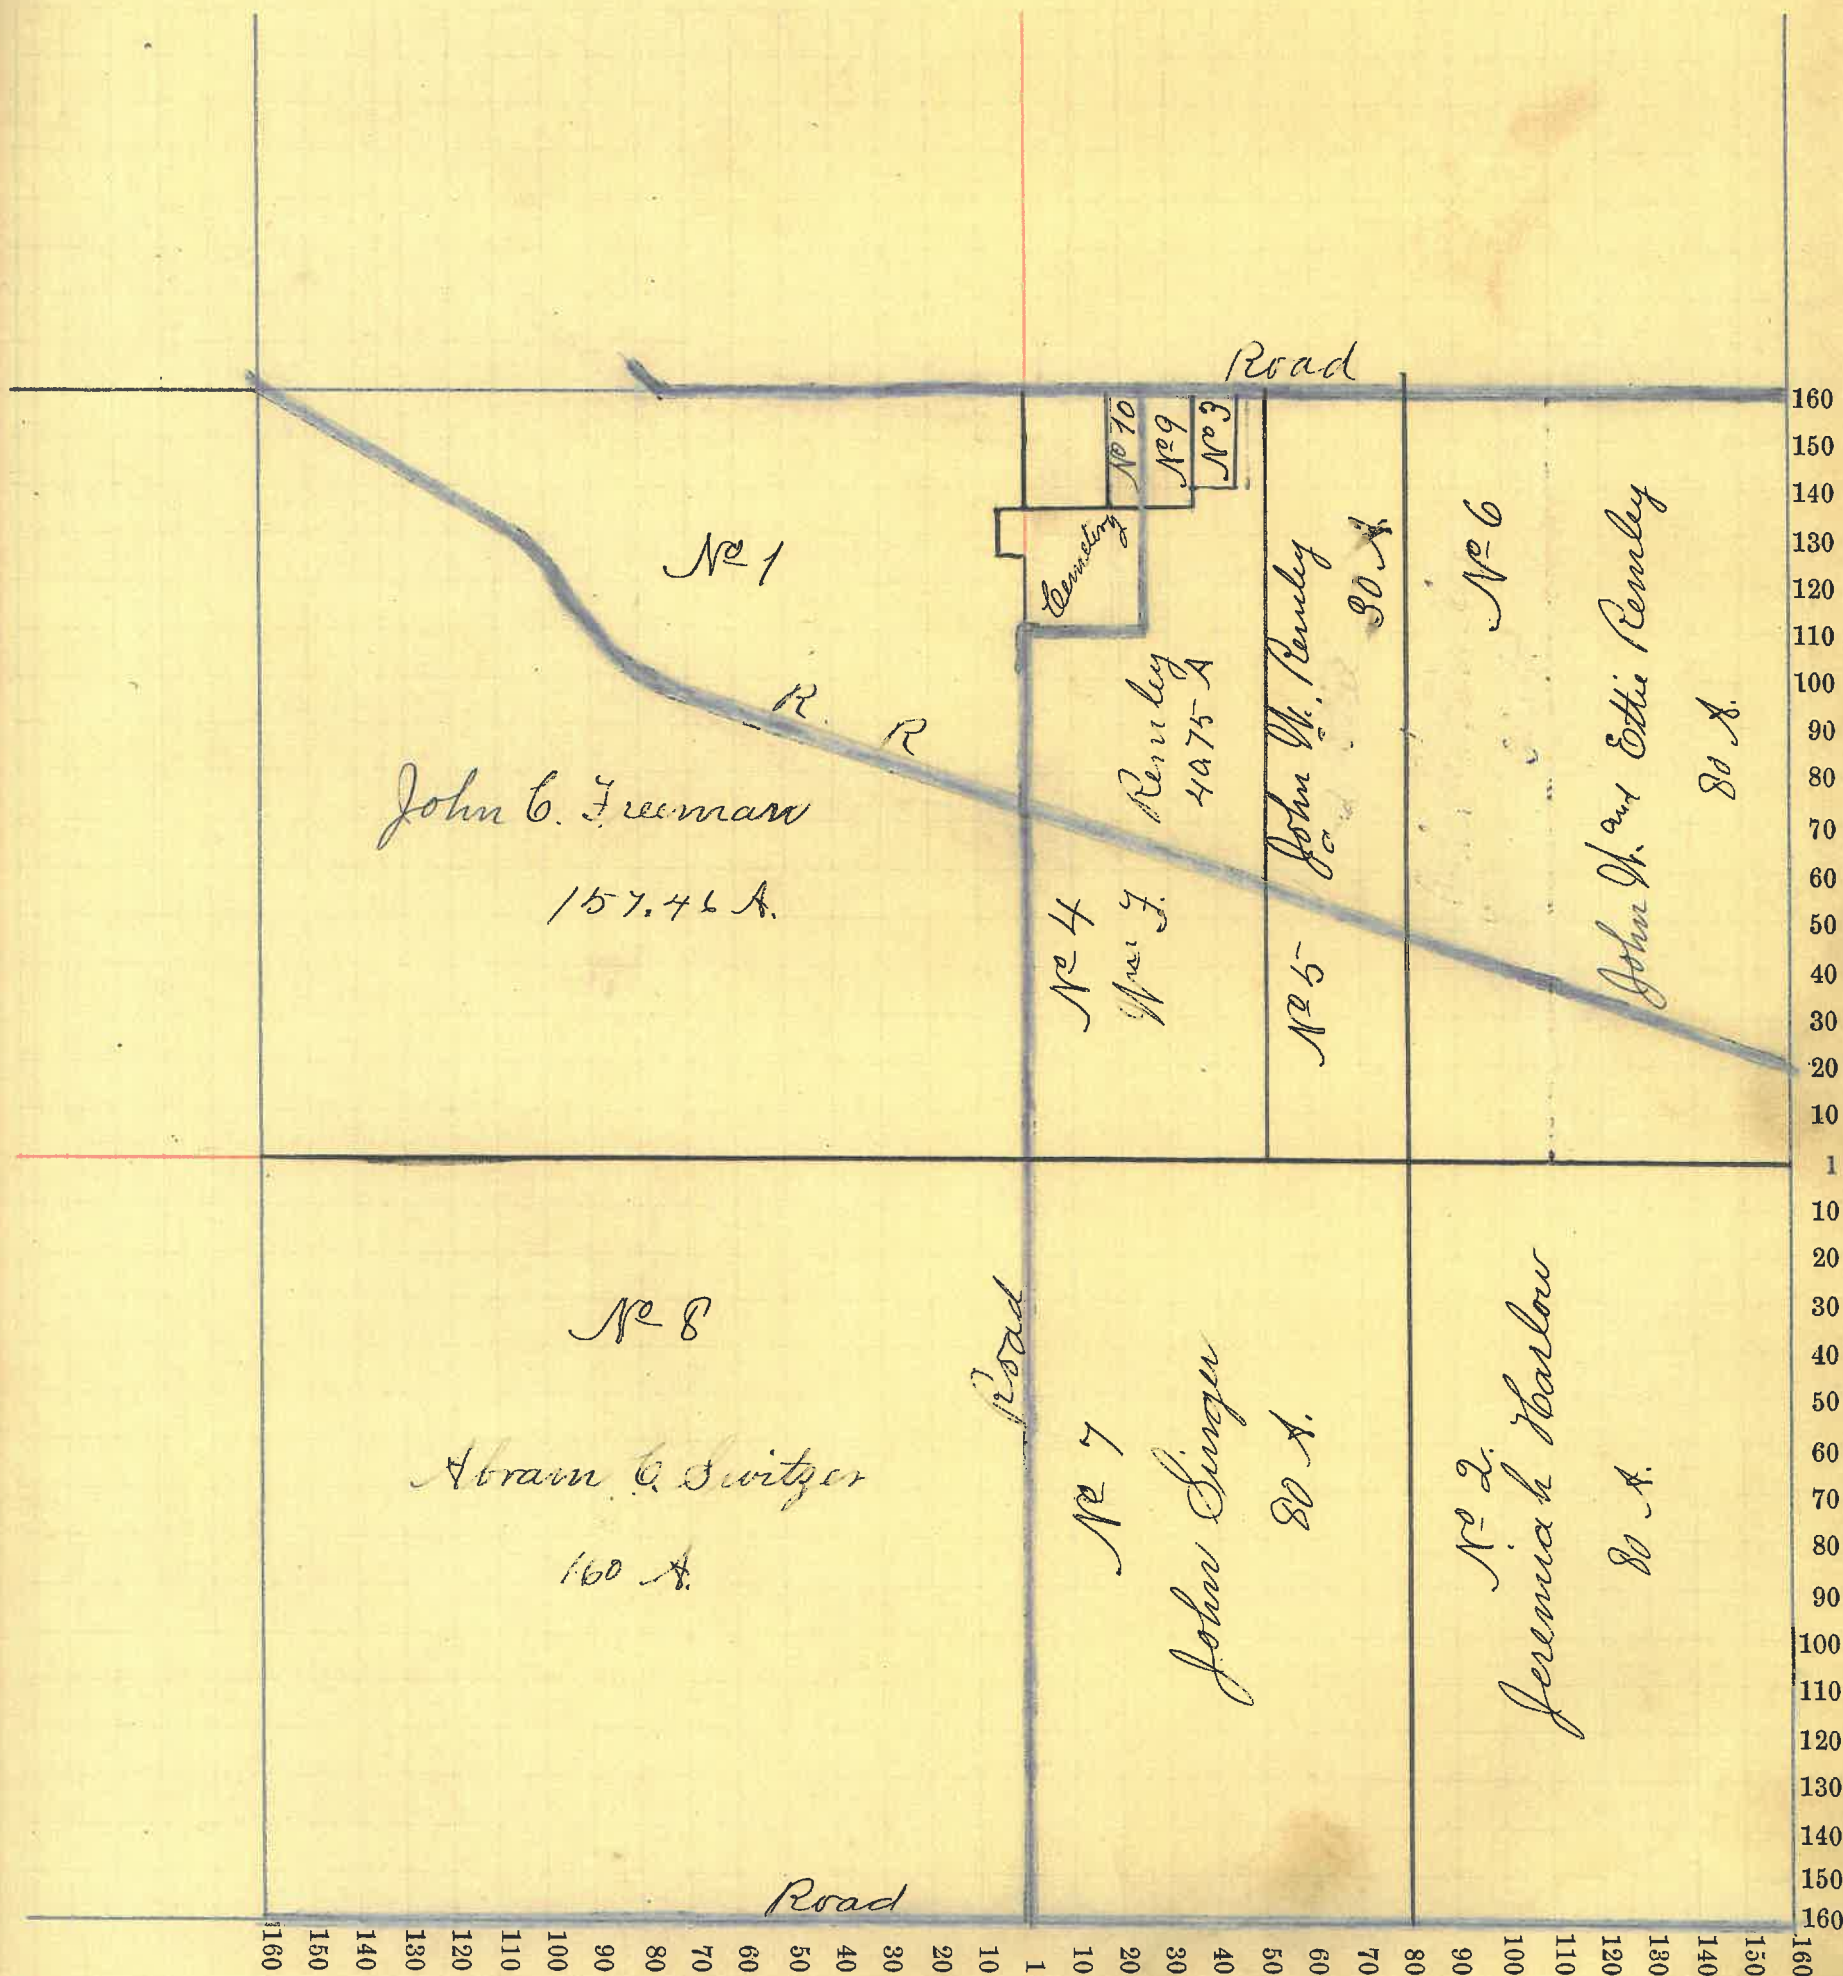 Road
No 10
No 9
No 3
Cemetery
No 1
R. R
John C. Freeman
157.46 A.
No 4
Wm. F. Remley
49.75 A
No 5 John W. Remley
30 A.
No 6
John W. and Ettie Remley
80 A.
No 8
Abram C. Switzer
160 A.
Road
No 7
John Singer
80 A.
No 2.
Jeremiah Harlow
80 A.
Road
160
150
140
130
120
110
100
90
80
70
60
50
40
30
20
10
1
10
20
30
40
50
60
70
80
90
100
110
120
130
140
150
160
160 150 140 130 120 110 100 90 80 70 60 50 40 30 20 10 1 10 20 30 40 50 60 70 80 90 100 110 120 130 140 150 160